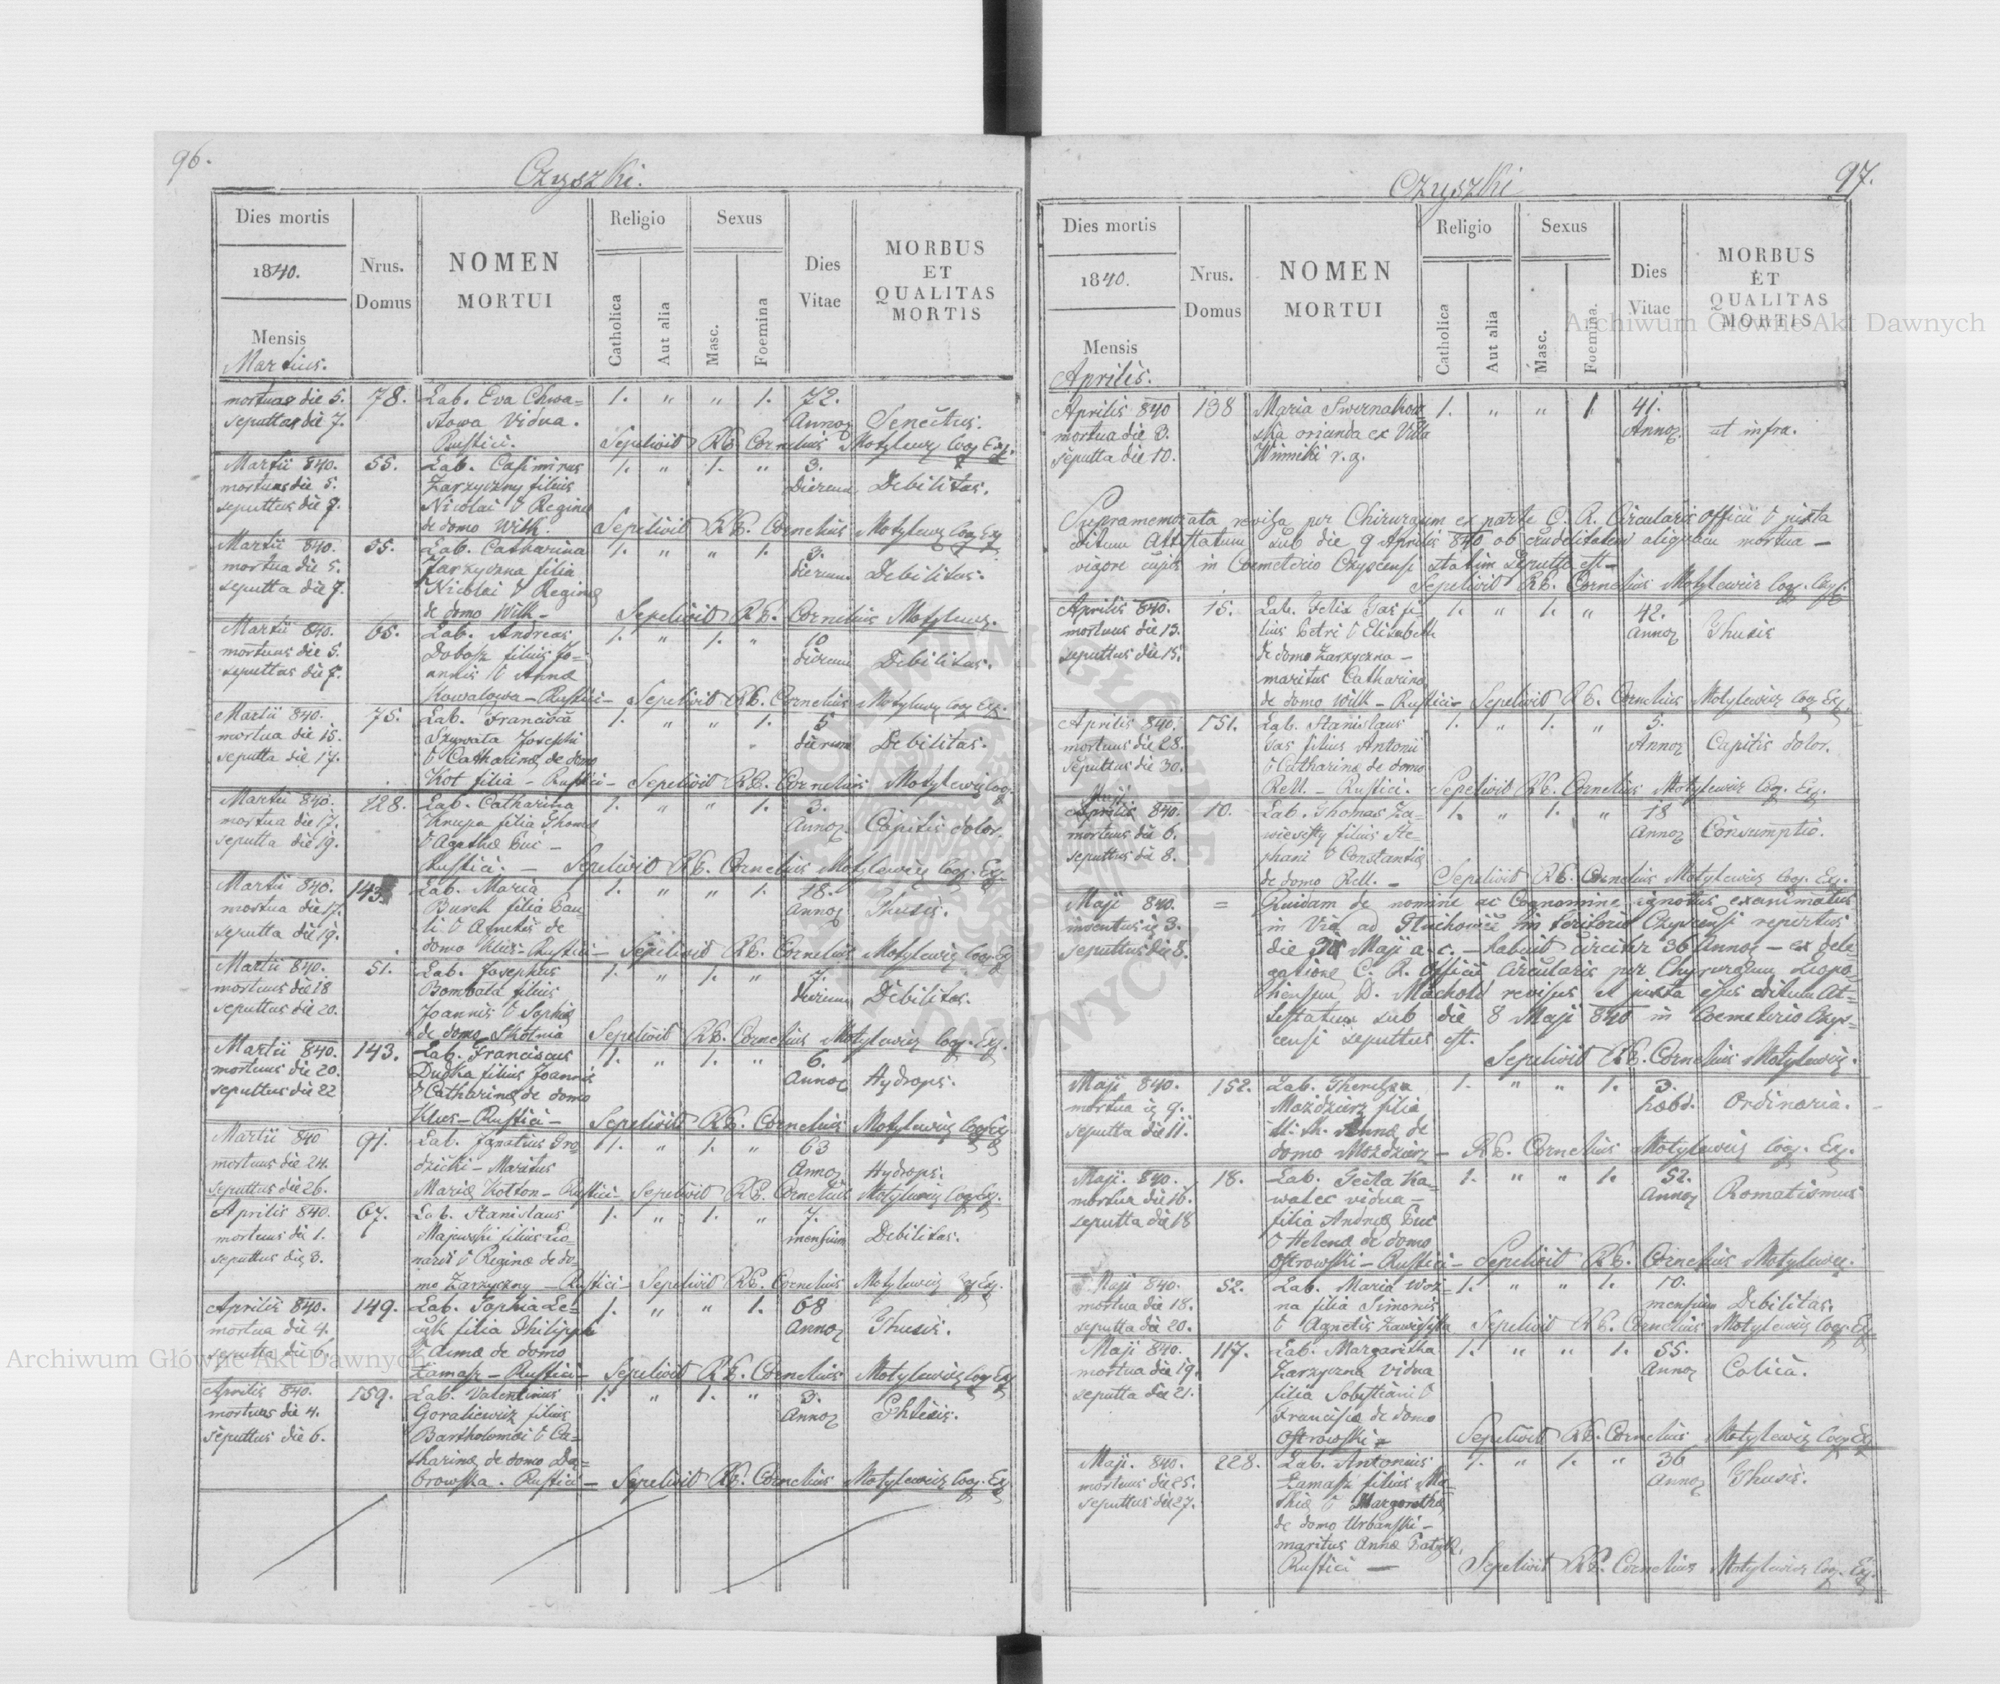 96.
Czyszki.
Dies mortis
1840.
Mensis
Martius.
Nrus.
Domus
NOMEN
MORTUI
Religio
Catholica
Aut alia
Sexus
Masc.
Foemina
Dies
Vitae
MORBUS
ET
QUALITAS
MORTIS
mortua die 5. 78. Lab. Eva Chwa= 1. " " 1. 72.
sepulta die 7. stowa vidua. Annor Senectus.
Rustici. Sepelivit RP. Cornelius Motylewicz Coop. Exp.
Martii 840. 55. Lab. Casimirus 1. " 1. " 3.
mortuus die 5. Zarzyczny filius dierum Debilitas.
sepultus die 7. Nicolai & Reginæ
de domo Wilk. Sepelivit RP. Cornelius Motylewicz Coop. Exp.
Martii 840. 55. Lab. Catharina 1. " " 1. 3.
mortua die 5. Zarzyczna filia dierum Debilitas.
sepulta die 7. Nicolai & Reginæ
de domo Wilk - Sepelivit RP. Cornelius Motylewicz.
Martii 840. 65. Lab. Andreas 1. " 1. " 10
mortuus die 5. Dobosz filius Jo= dierum Debilitas.
sepultus die 7. annis & Annæ
Kowalowa - Rustici - Sepelivit RP. Cornelius Motylewicz Coop. Exp.
Martii 840. 75. Lab. Francisca 1. " " 1. 5
mortua die 15. Szuwała Josephi dierum Debilitas.
sepulta die 17. & Catharinæ de domo
Kot filia - Rustici - Sepelivit RP. Cornelius Motylewicz Coop.
Martii 840. 128. Lab. Catharina 1. " " 1. 3.
mortua die 17. Knupa filia Thomæ Annor. Capitis dolor.
sepulta die 19. & Agathæ Puc -
Rustici. - Sepelivit RP. Cornelius Motylewicz Coop. Exp.
Martii 840. 143 Lab. Maria 1. " " 1. 18.
mortua die 17. Burek filia Pau= Annor Thusis.
sepulta die 19. li & Agnetis de
domo Klus - Rustici - Sepelivit RP. Cornelius Motylewicz Coop. Exp.
Martii 840. 51. Lab. Josephus 1. " 1. " 7.
mortuus die 18 Bombala filius dierum Debilitas.
sepultus die 20. Joannis & Sophiæ
de domo Skotnia Sepelivit RP. Cornelius Motylewicz Coop. Exp.
Martii 840. 143. Lab. Franciscus 1. " 1. " 6.
mortuus die 20. Dudka filius Joannis Annor Hydrops.
sepultus die 22 & Catharinæ de domo
Klus - Rustici - Sepelivit RP. Cornelius Motylewicz Coop. Exp.
Martii 840 91. Lab. Ignatius Gro 1. " 1. " 63
mortuus die 24. dzicki - Maritus Annor Hydrops.
sepultus die 26. Mariæ Kotton - Rustici - Sepelivit RP. Cornelius Motylewicz Coop. Exp.
Aprilis 840. 67. Lab. Stanislaus 1. " 1. " 7.
mortuus die 1. Majewski filius Leo= mensium Debilitas.
sepultus die 3. nardi & Reginæ de do=
mo Zarzyczny - Rustici - Sepelivit RP. Cornelius Motylewicz Coop. Exp.
Aprilis 840. 149. Lab. Sophia Le= 1. " " 1. 68
mortua die 4. filia Philippi Annor Thusis.
sepulta die 6. & Annæ de domo
Łamasz - Rustici - Sepelivit RP. Cornelius Motylewicz Coop. Exp.
Aprilis 840. 159. Lab. Valentinus 1. " 1. " 3.
mortuus die 4. Goraliewicz filius Annor Phtisis.
sepultus die 6. Bartholomæi & Ca=
tharinæ de domo Da=
browska. Rustici - Sepelivit RP. Cornelius Motylewicz Coop. Exp.
97.
Czyszki
Dies mortis
1840.
Mensis
Aprilis.
Nrus.
Domus
NOMEN
MORTUI
Religio
Catholica
Aut alia
Sexus
Masc.
Foemina.
Dies
Vitae
MORBUS
ET
QUALITAS
MORTIS
Aprilis 840 138 Maria Swernakow 1. " " 1. 41.
mortua die 3. ska oriunda ex Villa Annor. ut infra.
sepulta die 10. Winniki r. g.
Supramemorata revisa per Chirurgum ex parte C. R. Circularis officii & juxta
editum Attestatum sub die 9 Aprilis 840 ob crudelitatem aliquam mortua -
vigore cujus in Coemeterio Czyscensi statim sepulta est -
Sepelivit RP. Cornelius Motylewicz Coop. Exp.
Aprilis 840. 15. Lab. Felix Gas fi 1. " 1. " 42.
mortuus die 13. lius Petri & Elisabeth Annor Thusis
sepultus die 15. de domo Zarzyczna -
maritus Catharinæ
de domo Wilk - Rustici - Sepelivit RP. Cornelius Motylewicz Coop. Exp.
Aprilis 840. 151. Lab. Stanislaus 1. " 1. " 5.
mortuus die 28. Gas filius Antonii Annor Capitis dolor.
sepultus die 30. & Catharinæ de domo
Rell. - Rustici. Sepelivit RP. Cornelius Motylewicz Coop. Exp.
Maji
Aprilis 840. 10. Lab. Thomas Za= 1. " 1. " 18
mortuus die 6. filius Ste= Annor Consumptio.
sepultus die 8. phani & Constantiæ
de domo Rell. - Sepelivit RP. Cornelius Motylewicz Coop. Exp.
Maji 840. = Quidam de nomine ac Cognomine ignotus exanimatus
inventus ie 3. in Via ad Hluchowice in teritorio Czyscensi repertus
sepultus die 8. die Maji a. c. - habuit circiter 36 Annos - ex dele=
gatione C. R. Officii Circularis per Chyrurgum Leopo=
liensem D. Machold revisus et juxta ejus editum At=
testatum sub die 8 Maji 840 in Coemeterio Czys=
censi sepultus est.
Sepelivit RP. Cornelius Motylewicz.
Maji 840. 152. Lab. Theressa 1. " " 1. 3.
mortua ie 9. Mozdzierz filia hebd. Ordinaria.
sepulta die 11. ill: th. Annæ de
domo Mozdzierz - RP. Cornelius Motylewicz Coop. Exp.
Maji. 840. 18. Lab. Tecla Ka= 1. " " 1. 52.
mortua die 16. walec vidua - Annor Romatismus
sepulta die 18 filia Andreæ Puc
& Helenæ de domo
Ostrowski - Rustici - Sepelivit RP. Cornelius Motylewicz.
Maji 840. 52. Lab. Maria Woz= 1. " " 1. 10.
mortua die 18. na filia Simonis mensium Debilitas.
sepulta die 20. & Agnetis Sepelivit RP. Cornelius Motylewicz Coop. Exp.
Maji 840. 117. Lab. Margaritha 1. " " 1. 55.
mortua die 19. Zarzyczna vidua Annor Colica.
sepulta die 21. filia Sebastiani &
Franciscæ de domo
Ostrowski = Sepelivit RP. Cornelius Motylewicz Coop. Exp.
Maji. 840. 228. Lab. Antonius 1. " 1. " 36
mortuus die 25. Łamasz filius Ma= Annor Thusis.
sepultus die 27. thiæ & Margarethæ
de domo Urbanski -
maritus Annæ Patyk,
Rustici - Sepelivit RP. Cornelius Motylewicz Coop. Exp.
Archiwum Główne Akt Dawnych
Archiwum Główne Akt Dawnych
ARCHIWUM GŁÓWNE AKT DAWNYCH